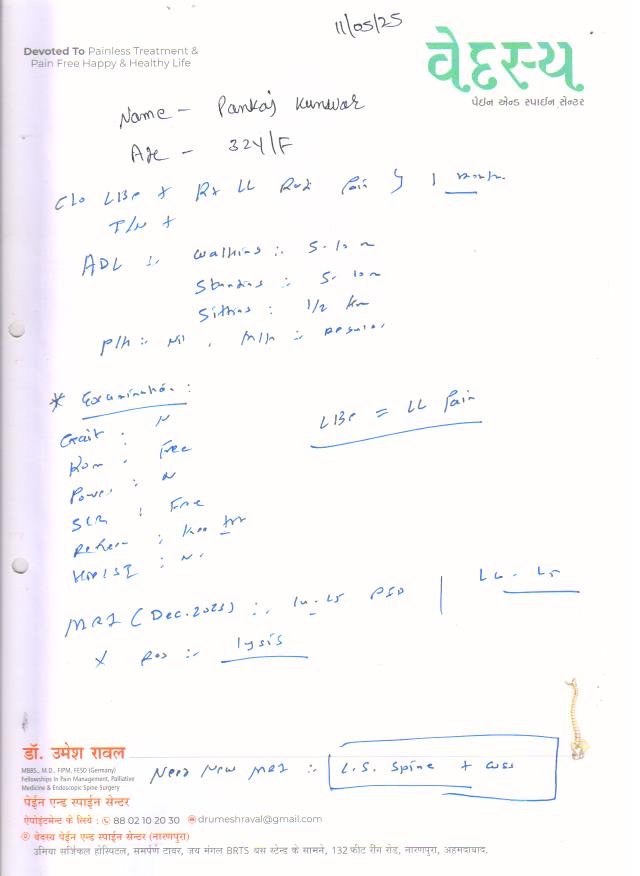 11/05/25
Devoted To Painless Treatment &
Pain Free Happy & Healthy Life
वेदस्य
પેઇન એન્ડ સ્પાઈન સેન્ટર
Name - Pankaj Kunwar
Age - 32Y/F
C/o LBP + Rt LL Rad. Pain 1 month
T/N +
ADL :. Walking :. 5-10 m
Standing :. 5-10 m
Sitting : 1/2 hr
P/H :. Nil, M/H :. Regular
* Examination :
LBP = LL Pain
Gait : N
Rom : Free
Power : N
SLR : Free
MRI (Dec. 2023) :. L4-L5 PID | L4-L5
X Ray :- lysis
डॉ. उमेश रावल
MBBS., M.D., FIPM, FESD (Germany)
Fellowships In Pain Management, Palliative
Medicine & Endoscopic Spine Surgery
Need New MRI :. L.S. Spine + WSS
पेईन एन्ड स्पाईन सेन्टर
ऐपोइंटमेन्ट के लिये : 88 02 10 20 30 drumeshraval@gmail.com
वेदस्य पेईन एन्ड स्पाईन सेन्टर (नारणपुरा)
उमिया सर्जिकल होस्पिटल, समर्पण टावर, जय मंगल BRTS बस स्टेन्ड के सामने, 132 फीट रींग रोड, नारणपुरा, अहमदाबाद.